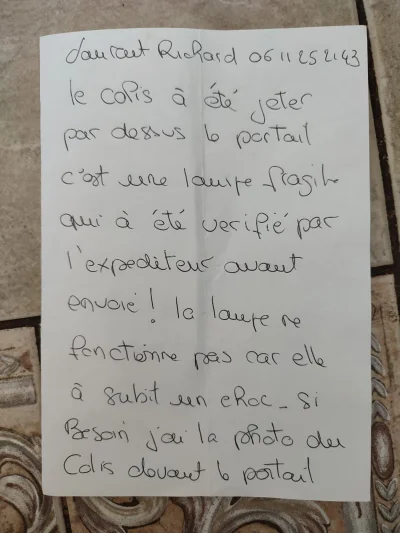 Laurent Richard 06 11 25 21 43
le colis à été jeter
par dessus le portail
c'est une lampe fragile
qui à été verifié par
l'expediteur avant
envoié ! la lampe ne
fonctionne pas car elle
à subit un choc - si
Besoin j'ai la photo du
Colis devant le portail